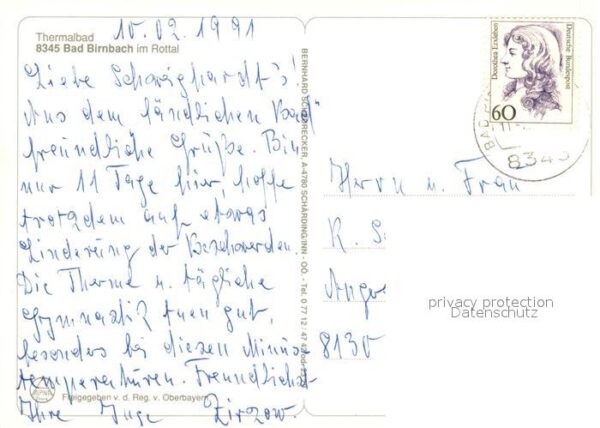 10.02.1991
Thermalbad
8345 Bad Birnbach im Rottal
Liebe Schweighardt's!
Aus dem "ländlichen Bad"
freundliche Grüße. Bin
nur 11 Tage hier, hoffe
trotzdem auf etwas
Linderung der Beschwerden.
Die Therme u. tägliche
Gymnastik tuen gut,
besonders bei diesen Minus-
temperaturen. Freundlichst
Ihre Inge Zirzow.
Freigegeben v. d. Reg. v. Oberbayern
BERNHARD A-4780 SCHÄRDING/INN - OÖ - Tel. 0 77 12 / 47
Dorothea Erxleben
Deutsche Bundespost
60
BAD
8345
Herrn u. Frau
R. S
Ange
8130
privacy protection
Datenschutz